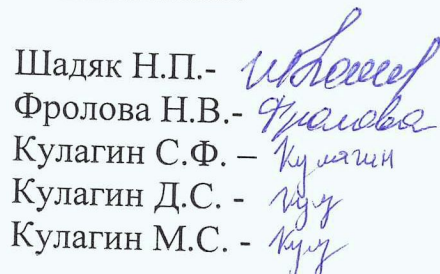 Шадяк Н.П.-
Фролова Н.В.- Фролова
Кулагин С.Ф. – Кулагин
Кулагин Д.С. - Кул
Кулагин М.С. - Кул